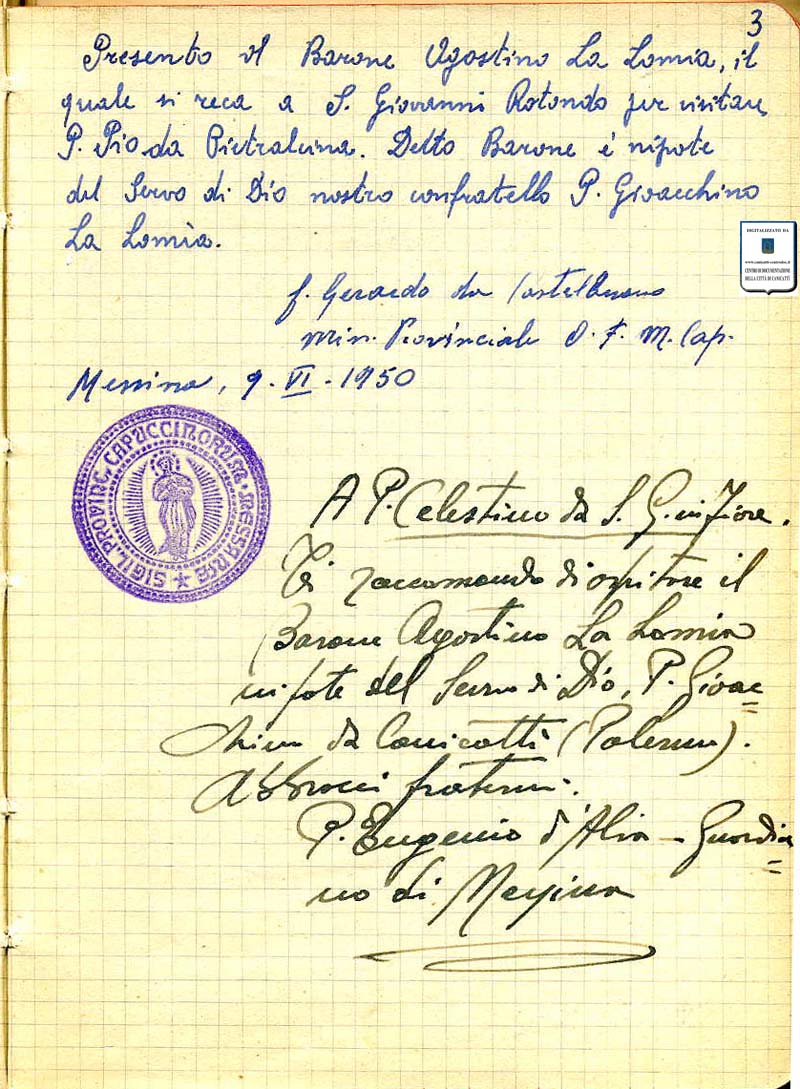 3
Presento il Barone Agostino La Lomia, il
quale si reca a S. Giovanni Rotondo per visitare
P. Pio da Pietralcina. Detto Barone è nipote
del Servo di Dio nostro confratello P. Gioacchino
La Lomia.
f. Gerardo da Castelbuono
Min. Provinciale O. F. M. Cap.
Messina, 9. VI. 1950
DIGITALIZZATO DA
CENTRO DI DOCUMENTAZIONE
DELLA CITTÀ DI CANICATTÌ
SIGIL. PROVINC. CAPUCCINORUM MESSANAE
A P. Celestino da S. G. in Fiore.
Ti raccomando di ospitare il
Barone Agostino La Lomia
nipote del Servo di Dio, P. Gioac=
chino da Canicattì (Palermo).
Abbracci fraterni.
P. Eugenio d'Alia - Guardia=
no di Messina